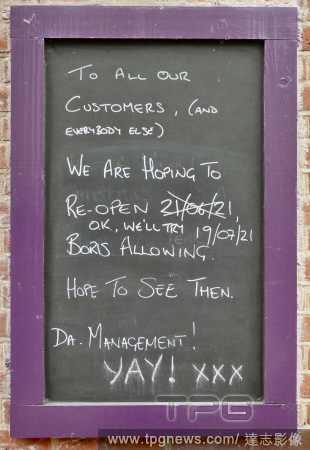 To All Our
Customers, (and
everybody else)
We Are Hoping To
Re-open 21/06/21,
OK, we'll try 19/07/21
Boris Allowing.
Hope To See Then.
Da. Management!
YAY! xxx
TPG
www.tpgnews.com/ 達志影像